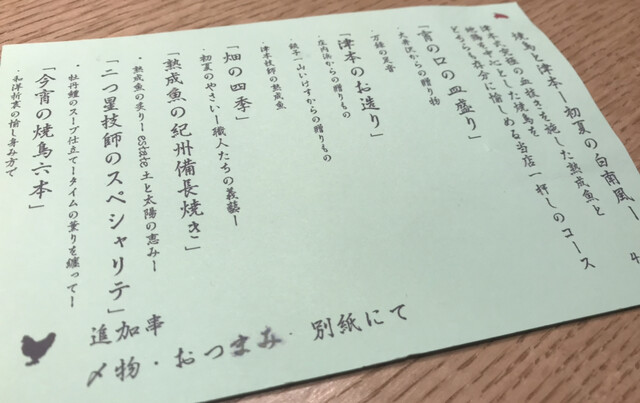 焼鳥と津本ー初夏の白南風ー
津本式究極の血抜きを施した熟成魚と
地鶏を中心とした焼鳥を
どちらも存分に愉しめる当店一押しのコース
「宵の口の皿盛り」
大麦沢からの贈り物
万鐘の足音
「津本のお造り」
庄内浜からの贈りもの
銚子一山いけすからの贈りもの
津本技師の熟成魚
「畑の四季」
初夏のやさいー職人たちの義藝ー
「熟成魚の紀州備長焼き」
熟成魚の炙りー estate 土と太陽の恵みー
「二つ星技師のスペシャリテ」
牡丹鱧のスープ仕立てータイムの薫りを纏ってー
「今宵の焼鳥六本」
和洋折衷の愉し弄み方で
追加串
〆物・おつまみ 別紙にて